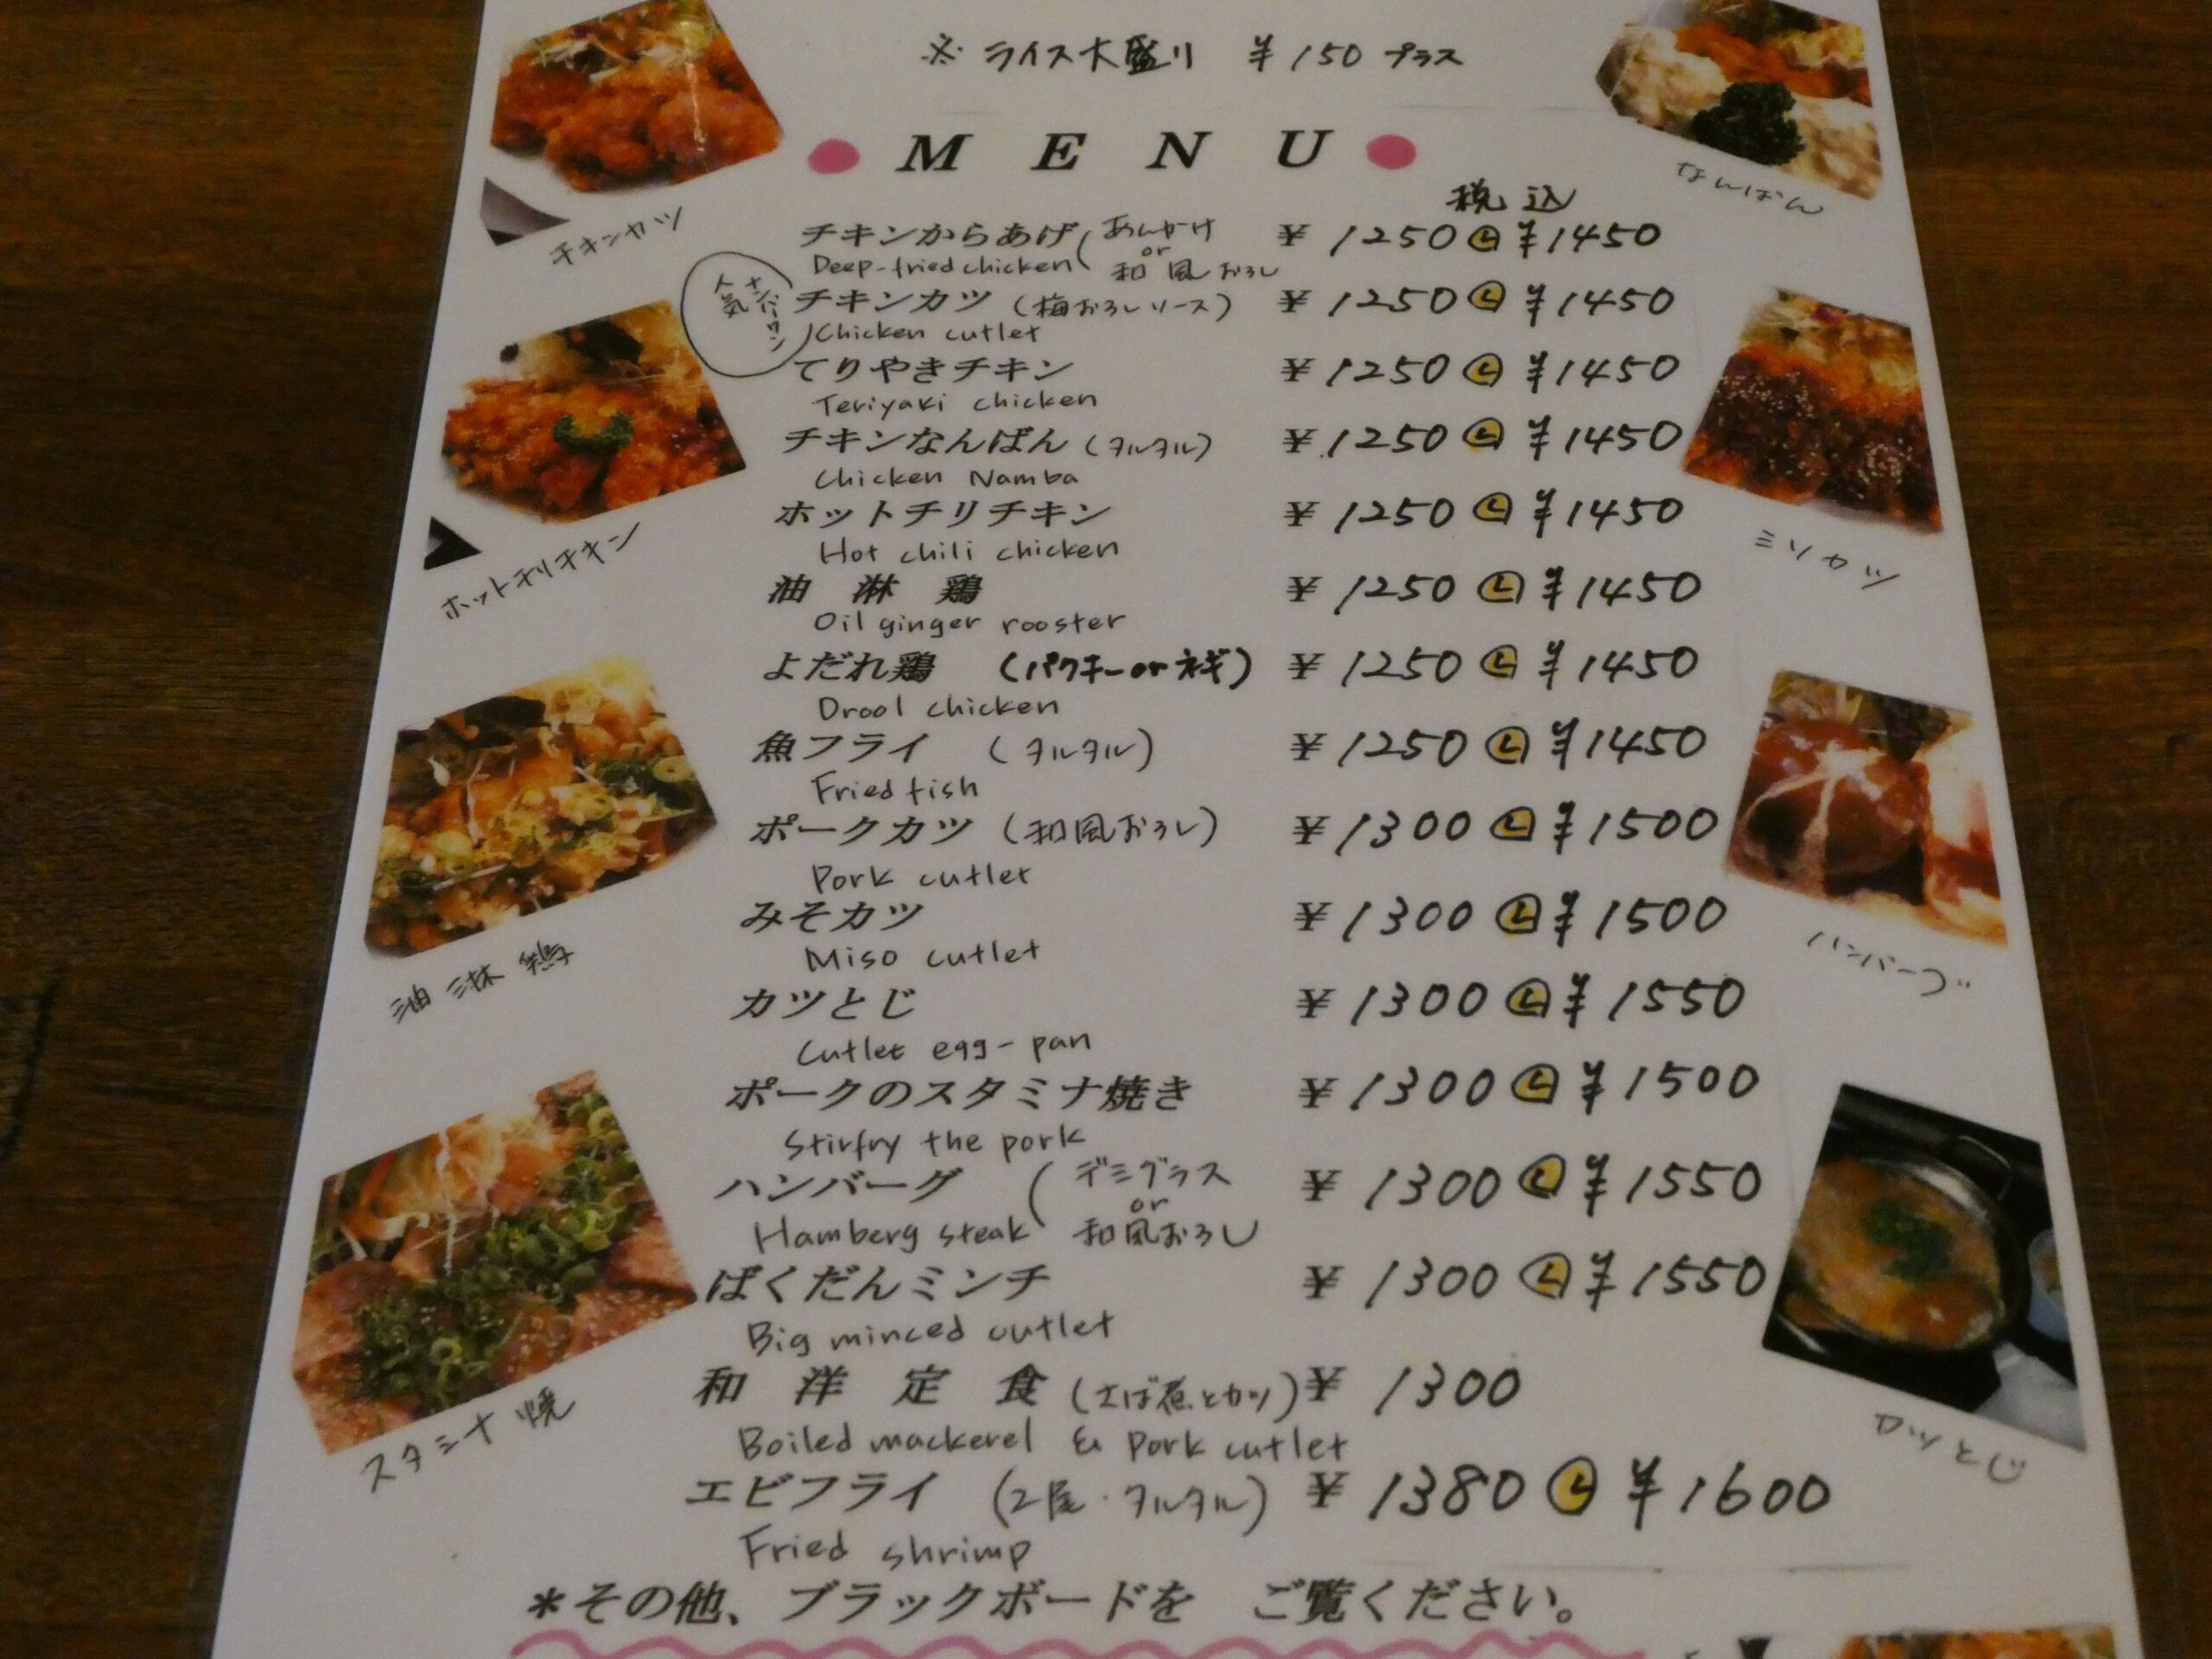 ※ ライス大盛り ¥150 プラス
● MENU ●
税込
チキンからあげ (あんかけ or 和風おろし ¥1250 Ⓛ ¥1450
Deep-fried chicken
人気ナンバーワン
チキンカツ (梅おろしソース) ¥1250 Ⓛ ¥1450
Chicken cutlet
てりやきチキン ¥1250 Ⓛ ¥1450
Teriyaki chicken
チキンなんばん (タルタル) ¥1250 Ⓛ ¥1450
Chicken Namba
ホットチリチキン ¥1250 Ⓛ ¥1450
Hot chili chicken
油淋鶏 ¥1250 Ⓛ ¥1450
Oil ginger rooster
よだれ鶏 (パクチー or ネギ) ¥1250 Ⓛ ¥1450
Drool chicken
魚フライ (タルタル) ¥1250 Ⓛ ¥1450
Fried fish
ポークカツ (和風おろし) ¥1300 Ⓛ ¥1500
Pork cutlet
みそカツ ¥1300 Ⓛ ¥1500
Miso cutlet
カツとじ ¥1300 Ⓛ ¥1550
Cutlet egg-pan
ポークのスタミナ焼き ¥1300 Ⓛ ¥1500
Stirfry the pork
ハンバーグ (デミグラス or 和風おろし ¥1300 Ⓛ ¥1550
Hamberg steak
ばくだんミンチ ¥1300 Ⓛ ¥1550
Big minced cutlet
和洋定食 (さば煮とカツ) ¥1300
Boiled mackerel & pork cutlet
エビフライ (2尾・タルタル) ¥1380 Ⓛ ¥1600
Fried shrimp
*その他、ブラックボードを ご覧ください。
チキンカツ
ホットチリチキン
油淋鶏
スタミナ焼
なんばん
ミソカツ
ハンバーグ
カツとじ